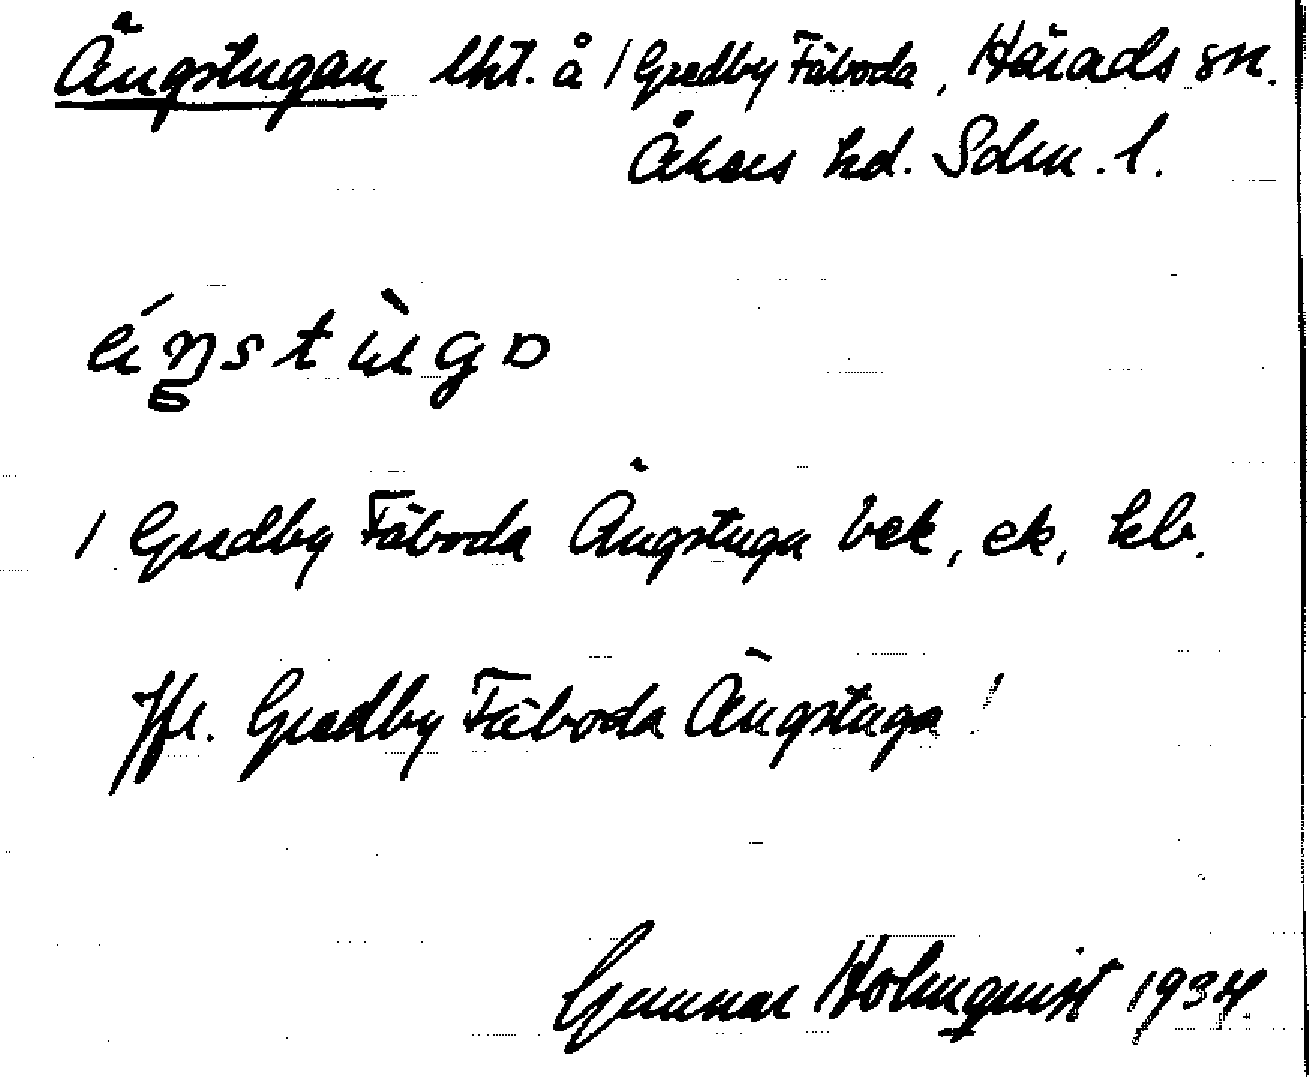 Ängstugan lht. å / Gredby Fäboda, Härads sn.
Åkers hd. Sdm. l.
ä́ŋstùgɒ
/ Gredby Fäboda Ängstuga bek, ek, hb.
Jfr. Gredby Fäboda Ängstuga !
Gunnar Holmquist 1934.